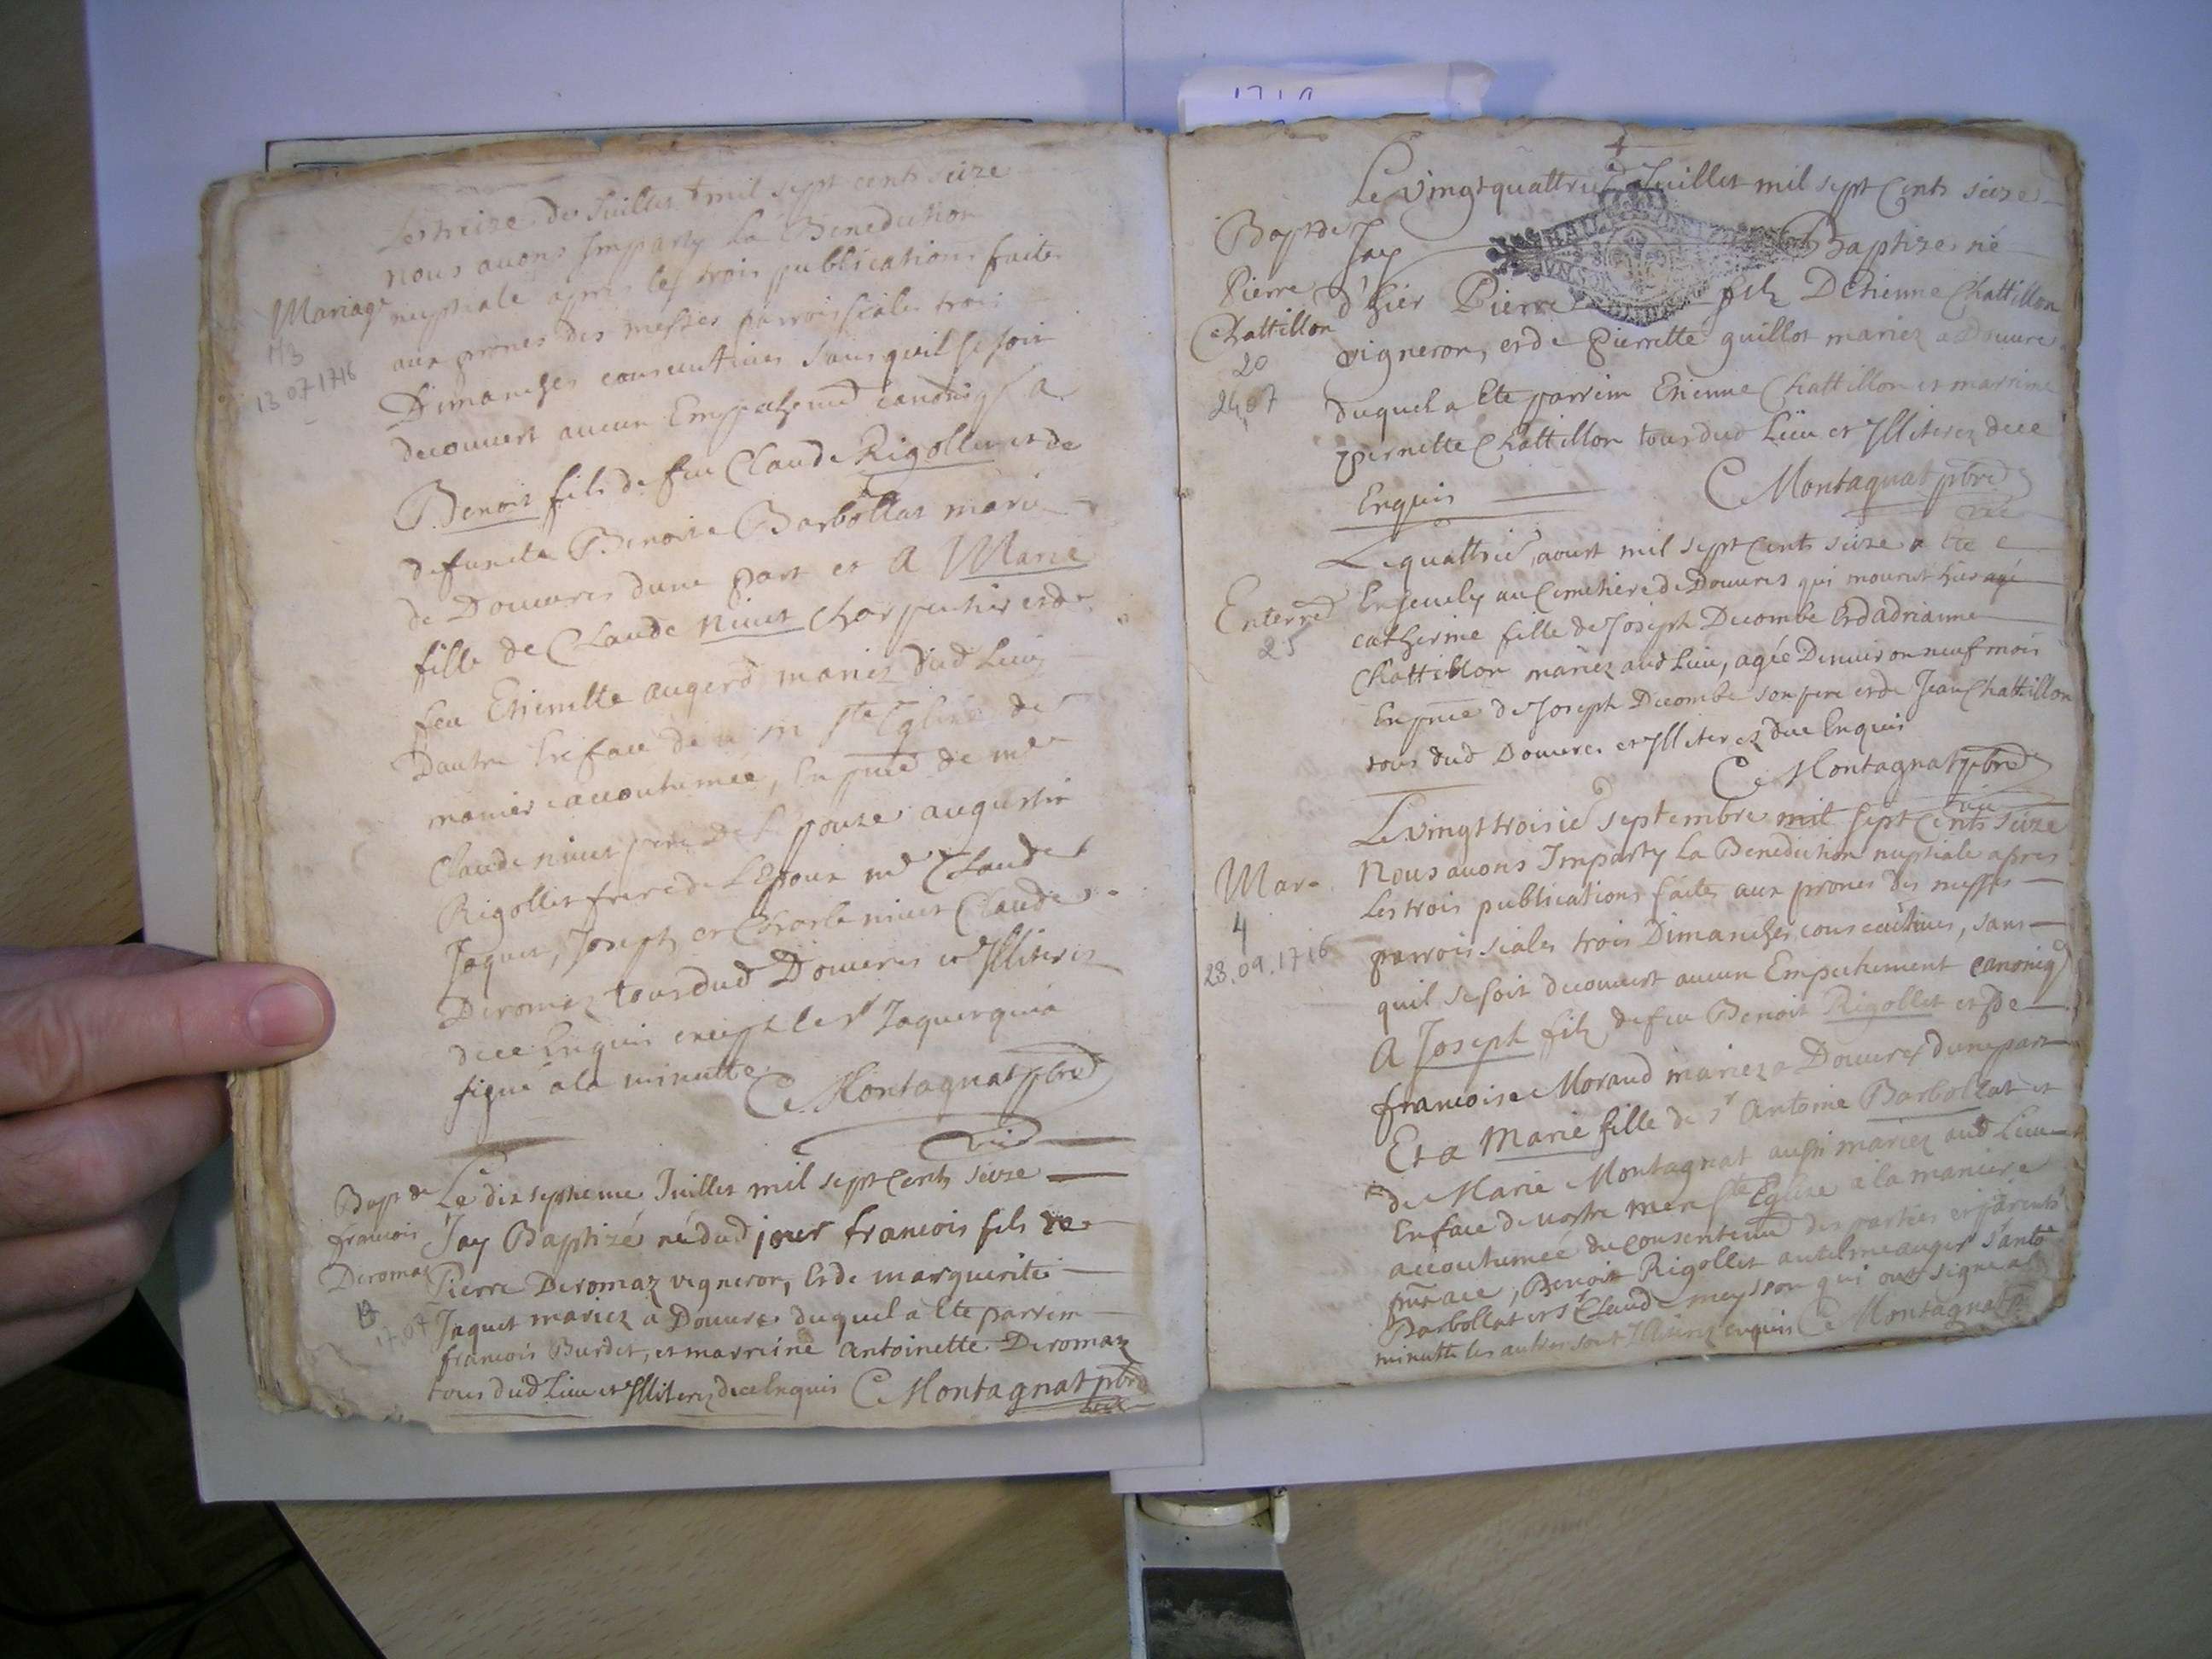 Le treize de Juillet mil sept cents seize
nous avons Imparty la Benediction
Mariage
nuptiale apres les trois publications faites
113
aux prones des messes parroissiales trois
13 07 1716
Dimanches consecutives sans quil se soit
decouvert aucun Empechemt canoniq a
Benoit fils de feu Claude Rigollet et de
defuncte Benoite Barbollat mariez
de Douvres dune part et a Marie
fille de Claude nivet charpentier et de
feu Etiennette augerd mariez dud Lieu
Dautre En face de n m ste Eglise de
maniere accoutumée, En pnce de mr
Claude nivet pere de L'epouze augustin
Rigollet frere de L'Epoux mr Claude
Jaquet, Joseph et Charle nivet Claude
Deromaz tous dud Douvres et Illiterez
dece Enquis excepté le sr Jaquet qui a
signé a la minutte
C Montagnat pbre
vic
Bapt de
francois
Deromaz
19
17 07
Le dix septieme Juillet mil sept cents seize
J'ay Baptizé né dud jour francois fils de
Pierre Deromaz vigneron, Et de marguerite
Jaquet mariez à Douvres duquel a Ete parrein
francois Burdet, et marreine Antoinette Deromaz
tous dud Lieu et Illiterez dece Enquis C Montagnat pbre
vic
Le vingt quattrie Juillet mil sept Cents seize
Bapt de
Pierre
Chattillon
20
24 07
J'ay Baptizé né
d'hier Pierre filz D'Etienne Chattillon
vigneron, et de Pierrette guillot mariez a Douvres
duquel a Ete parrein Etienne Chattillon et marreine
pernette Chattillon tous dud Lieu et Illiterez dece
Enquis C Montagnat pbre
vic
Le quattrie aoust mil sept Cents seize a Ete
Enterred
25
Ensevely au Cimetiere de Douvres qui mourut hier
catherine fille de Joseph Decombe Et d'adrianne
Chattillon mariez aud Lieu, agée Denviron neuf mois
En pnce de Joseph Decombe son pere et de Jean Chattillon
tous dud Douvres et Illiterez dece Enquis
C Montagnat pbre
vic
Le vingt troisie septembre mil sept Cents seize
Mar.
4
23.09.1716
Nous avons Imparty la Benediction nuptiale apres
Les trois publications faites aux prones des messes
parroissiales trois Dimanches consecutives, sans
quil se soit decouvert aucun Empechement canoniq
A Joseph filz de feu Benoit Rigollet et de
francoise Morand mariez a Douvres dune part
Et a Marie fille de sr Antoine Barbollat et
de Marie Montagnat aussi mariez aud Lieu
En face de nostre mere ste Eglise a la maniere
accoutumée du consentemt des parties et parents
Benoit Rigollet anthelme auger sr ante
Barbollat et sr Claude meysson qui ont signé a la
minutte les autres sont Illiterez enquis C Montagnat